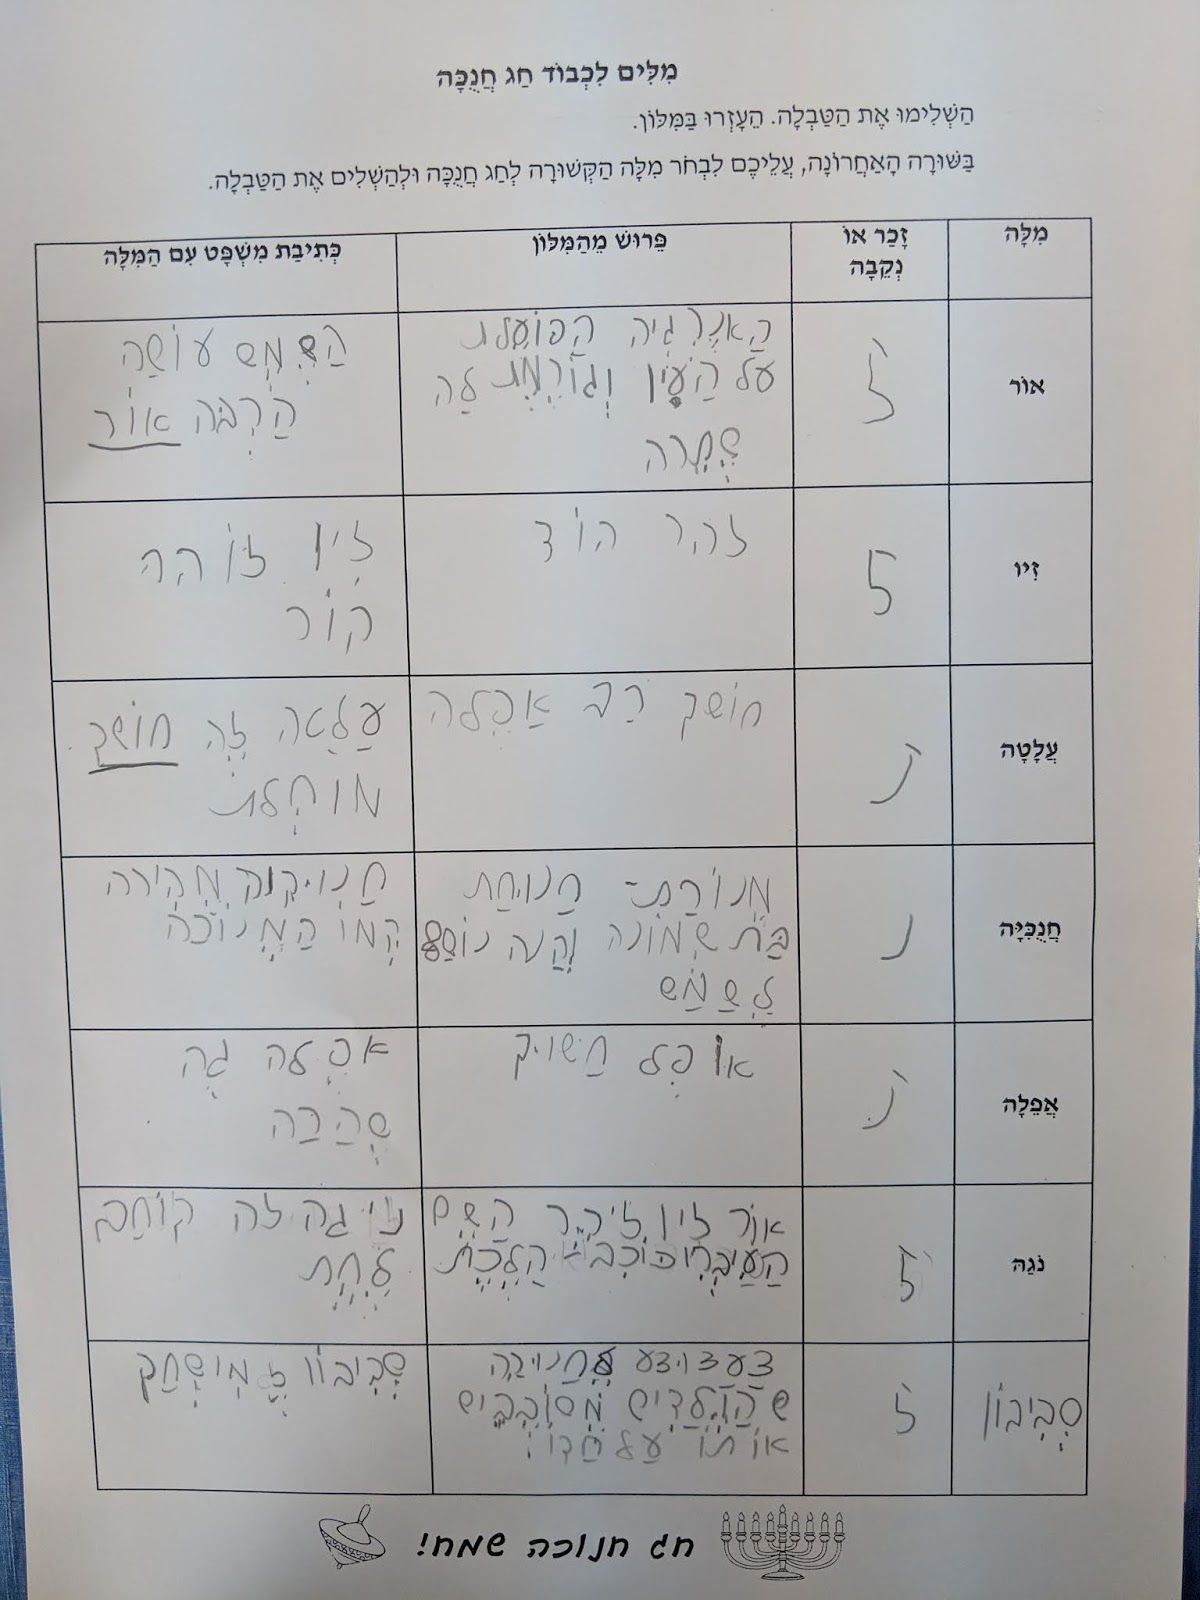 מִלִּים לִכְבוֹד חַג חֲנֻכָּה
הַשְׁלִימוּ אֶת הַטַּבְלָה. הֵעָזְרוּ בַּמִּלּוֹן.
בַּשּׁוּרָה הָאַחֲרוֹנָה, עֲלֵיכֶם לִבְחֹר מִלָּה הַקְּשׁוּרָה לְחַג חֲנֻכָּה וּלְהַשְׁלִים אֶת הַטַּבְלָה.
מִלָּה
זָכָר אוֹ
נְקֵבָה
פֵּרוּשׁ מֵהַמִּלּוֹן
כְּתִיבַת מִשְׁפָּט עִם הַמִּלָּה
אוֹר
ז
האנרגיה הפועלת
על העין וגורמת לה
הַשמש עושה
הרבה אור
זִיו
ז
זהר הוד
זיו זוהה
קור
עֲלָטָה
נ
חושק רב אפלה
עלטה זה חושק
מוחלת
חֲנֻכִּיָּה
נ
מנורת חנוחת
בת שמונה וקנה נוסף
לשמש
מהירה
קמו המנוכה
אֲפֵלָה
נ
אופל חשויק
אפלה גה
שהבה
נֹגַהּ
ז
אור זיו
נוגה לה קוחב
לחת
סביבון
ז
שהילדים מסובבים
אותו על חדו
סביבון מישחק
חג חנוכה שמח!